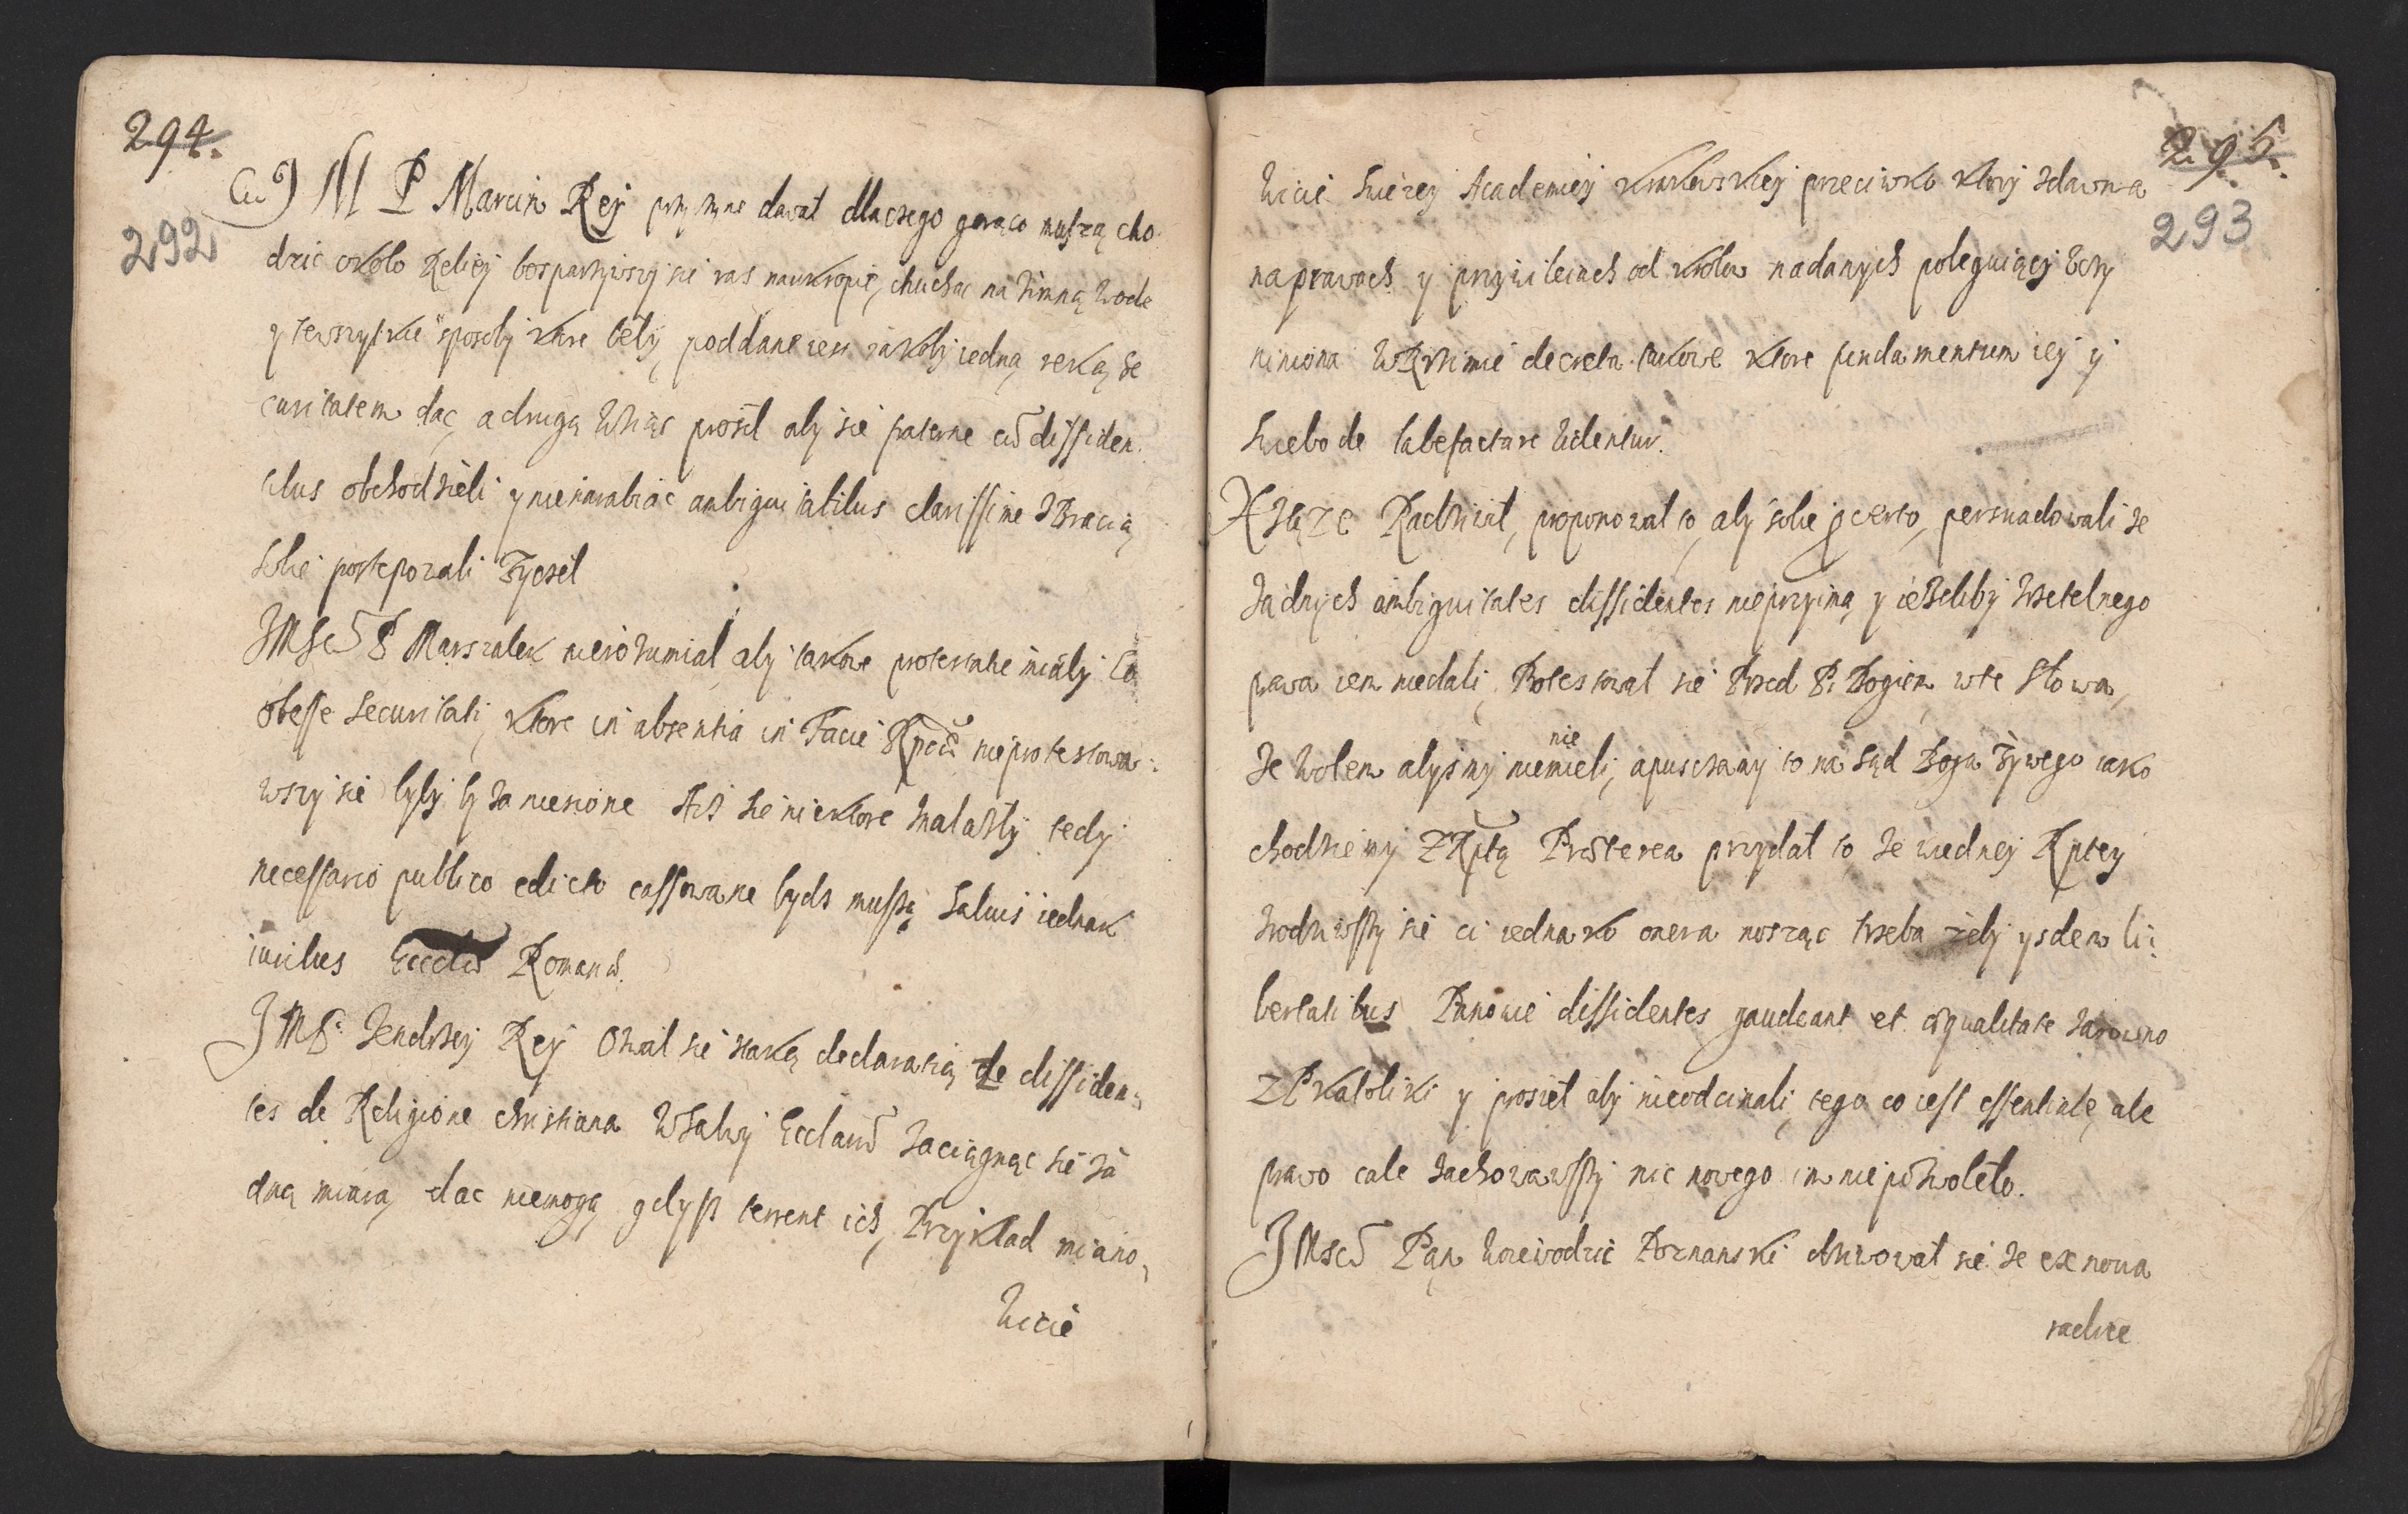 294.
292
J M P Marcin Rej przyczyne dawał dlaczego gorąco muszą cho
dzic około Religÿ bo sparzywszy sie ras naukropie, chuchac na zimną wode
y tewszytkie sposoby ktore bely poddane iem iakoby iedną reką se
curitatem dac, a drugą wziąc prosił aby sie fraterne cum dissiden
tibus obchodzieli y niezarabiac ambiguitatibus clarissime zBracią
sobie postepowali zyczel
JMSc P Marszalek nierozumial aby takowe protestatie miały co
obesse securitati, ktore in absentia in Facie Rpcae nieprotestowa
wszy sie były by zaniesione Acz sie niektore znalazły tedy
necessario publico edicto cassowane bydz muszą Saluis iednak
iuribus Eccclae Romanae.
J M P. Jendrzey Rey ozwał sie staką declaratią ze dissiden
tes de Religione christiana wsalwy Ecclarum zaciągnąc sie za
dną miarą dac niemogą gdysz terrent ich, Przykład miano,
wicie
295.
293
wicie swiezey Academiey Krakowskiey przeciwko ktory zdawna
na prawach y przywileiach od krolow nadanych poleguiący
niniona wRzymie decreta takowe ktore fundamentum iey y
swebode labefactare videntur.
Xsiąze Radziwił, proponował to, aby sobie pro certo, persuadowali ze
zadnych ambiguitates dissidentes nieprzyimą y iezeliby rzetelnego
prawa iem niedali, Protestował sie Przed P. Bogiem wte słowa,
ze wolem abysmy niemieli, apusczamy to na sąd Boga zywego iako
nie
chodziemy z Rptą Praeterea przydał to ze wiedney Rptey
zrodziwszy sie ci iednako onera nosząc trzeba zeby ysdem li
bertatibus Panowie dissidentes gaudeant et aequalitate zarowno
z P Katoliki y prosieł aby nieodcinali, tego co iest essentiale, ale
prawo cale zachowawszy nic nowego im niepozwoleło.
JMsc Pan woiewodzic Poznanski obiwował sie ze ex noua
radice